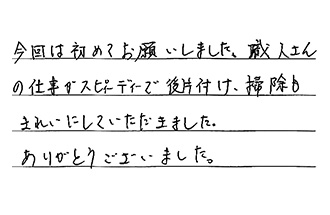 今回は初めてお願いしました。職人さん
の仕事がスピーディーで後片付け、掃除も
きれいにしていただきました。
ありがとうございました。